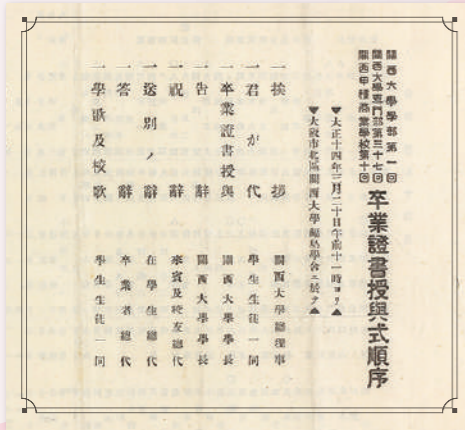 關西大學學部第一回
關西大學專門部第三十七回
關西甲種商業學校第十回
卒業證書授與式順序
▼大正十四年三月二十日午前十一時ヨリ▲
▼大阪市北區關西大學福島學舍ニ於テ▲
一挨拶 關西大學總理事
一君が代 學生生徒一同
一卒業證書授與 關西大學學長
一告辭 關西大學學長
一祝辭 來賓及校友總代
一送別ノ辭 在學生總代
一答辭 卒業者總代
一學歌及校歌 學生生徒一同